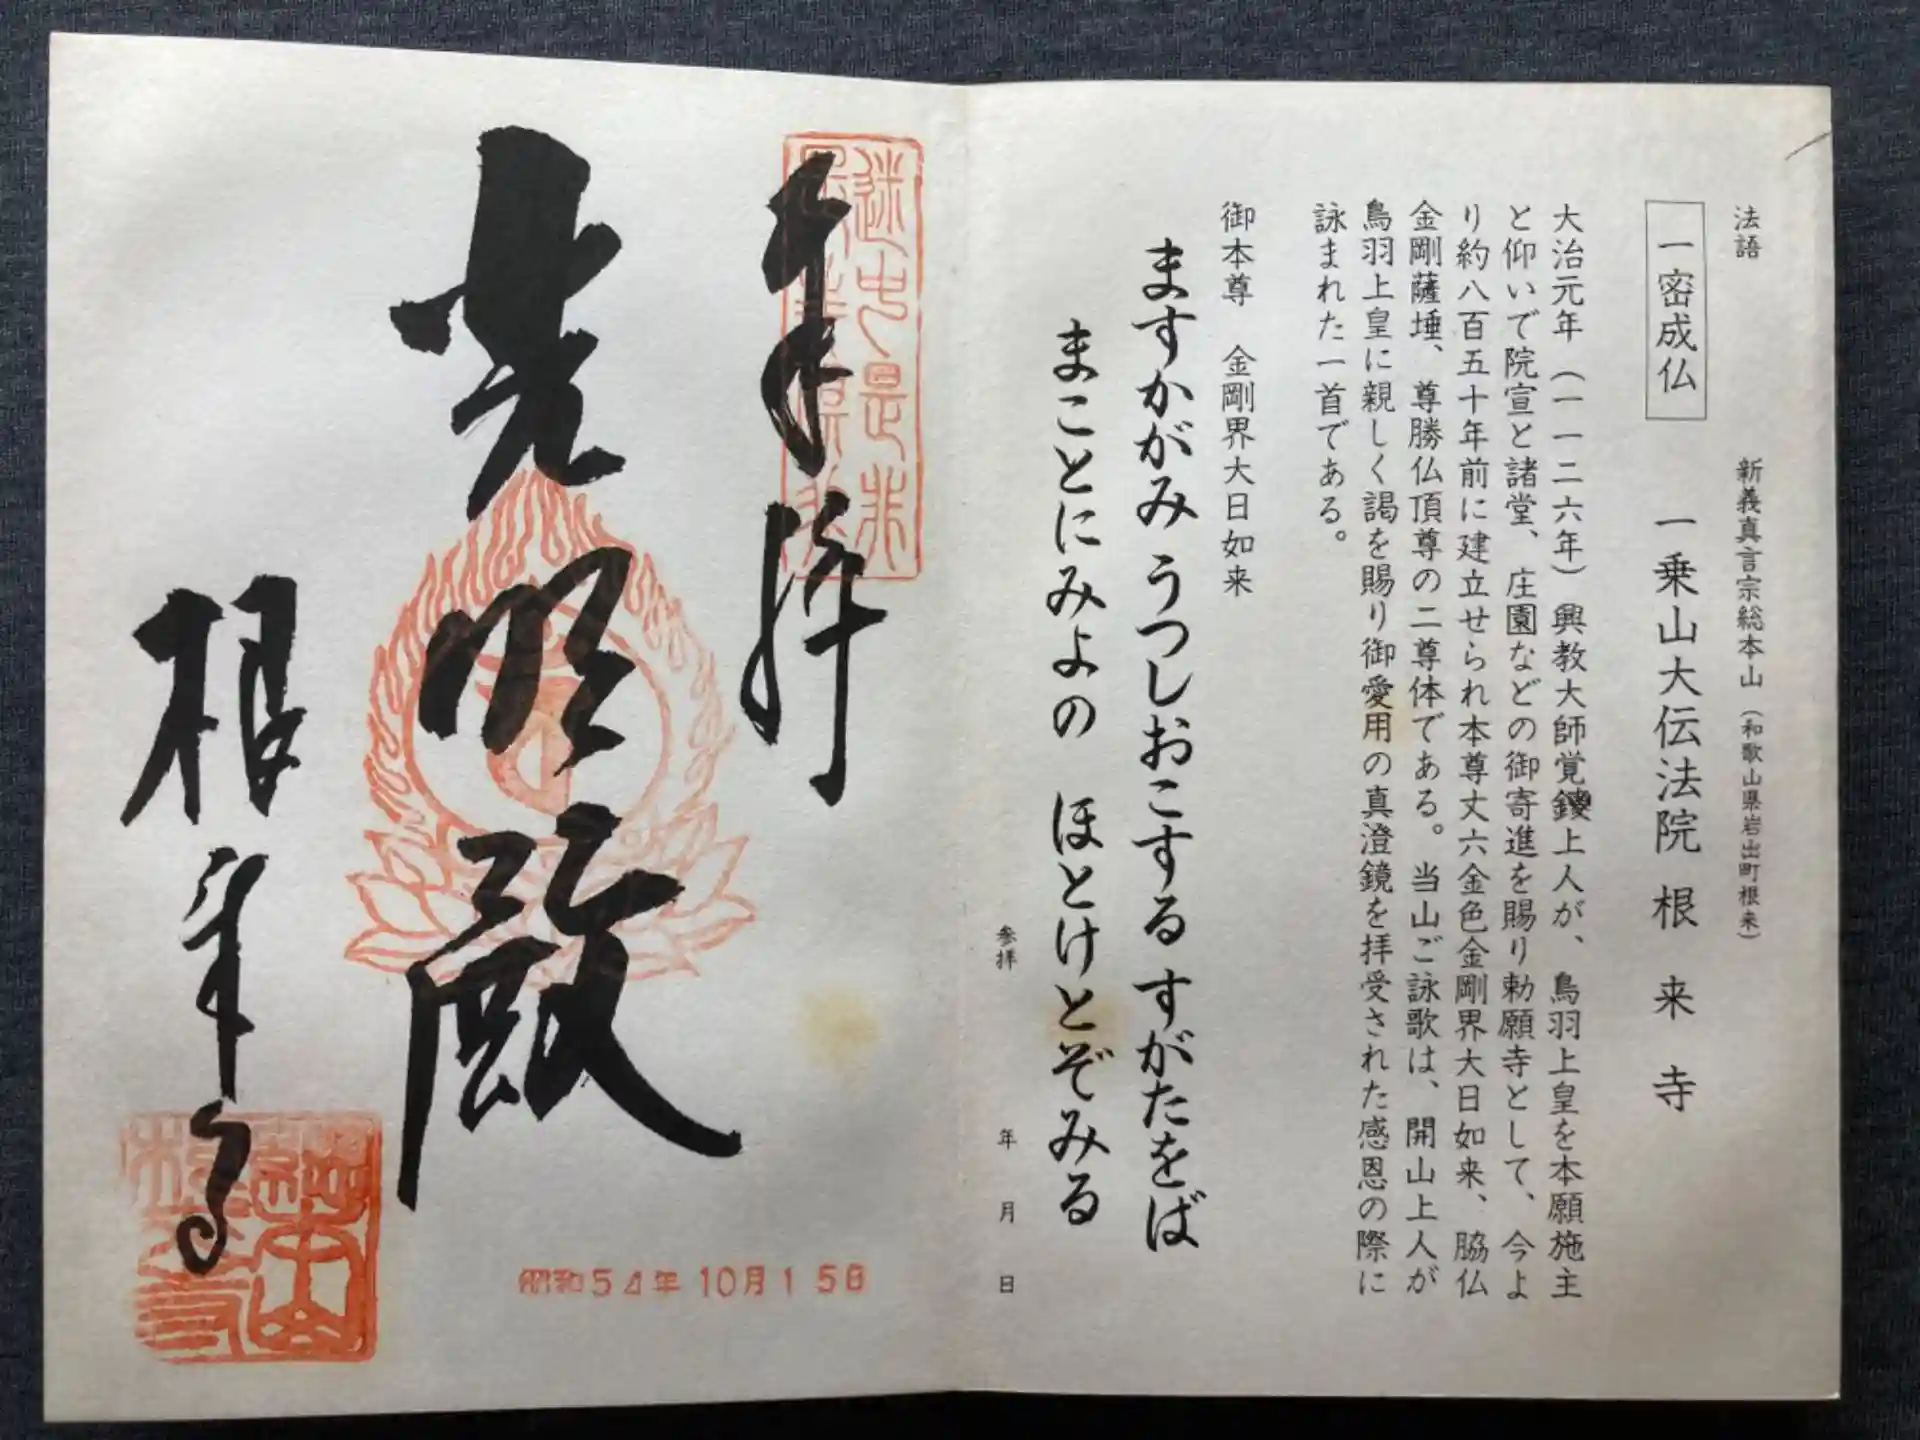 法語
新義真言宗総本山(和歌山県岩出町根来)
一密成仏 一乗山大伝法院 根来寺
大治元年(一一二六年)興教大師覚鑁上人が、鳥羽上皇を本願施主
と仰いで院宣と諸堂、庄園などの御寄進を賜り勅願寺として、今よ
り約八百五十年前に建立せられ本尊丈六金色金剛界大日如来、脇仏
金剛薩埵、尊勝仏頂尊の二尊体である。当山ご詠歌は、開山上人が
鳥羽上皇に親しく謁を賜り御愛用の真澄鏡を拝受された感恩の際に
詠まれた一首である。
御本尊 金剛界大日如来
ますかがみ うつしおこする すがたをば
まことにみよの ほとけとぞみる
参拝 年 月 日
奉拝
光明殿
根来寺
昭和54年10月15日